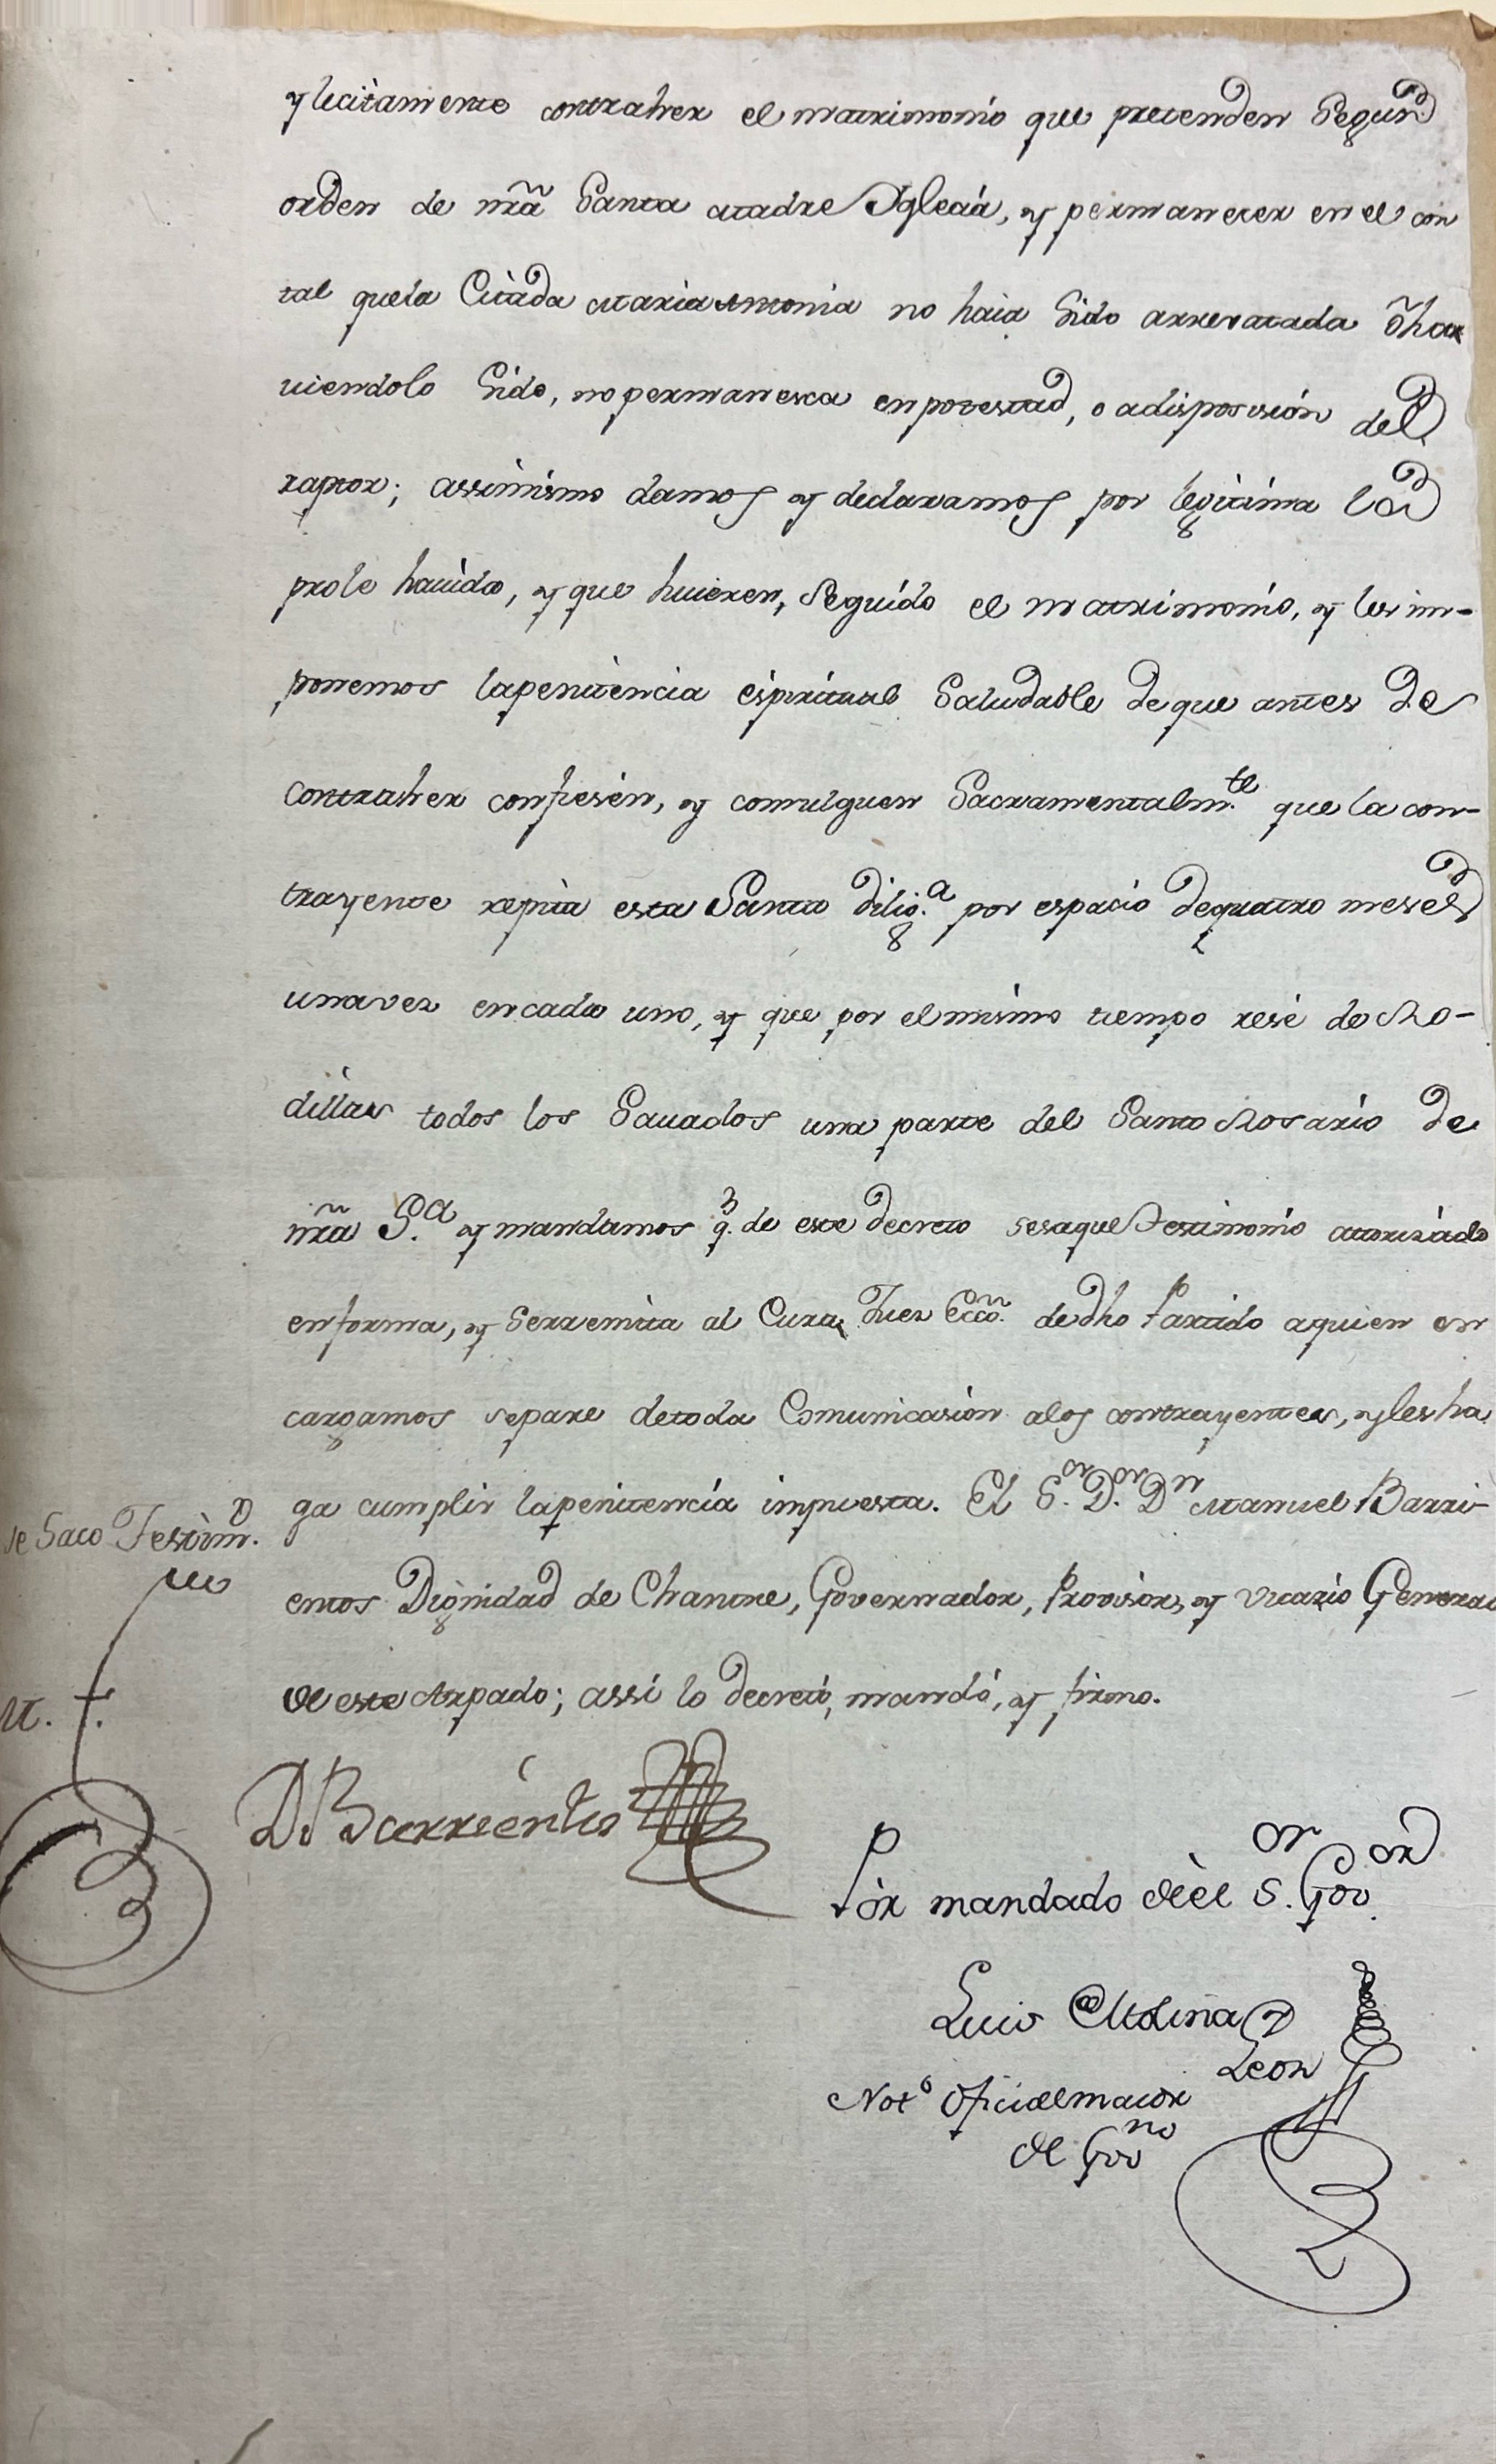 y licitamente contraher el matrimonio que pretenden Segun
orden de nrã Santa Madre Yglecia, y permanecer en el con
tal quela Citada Maria Antonia no haia Sido arrevatada õ ha
viendolo Sido, no permanesca en potestad, o a disposision del
raptor; assimismo damos y declaramos por legitima la
prole havida, y que huieren, Seguido el matrimonio, y les im-
ponemos la penitencia espiritual Saludable de que antes de
contraher confiesen, y comulguen Sacramentalm.te que la con-
trayente repita esta Santa dilig.a por espacio de quatro meses
una vez en cada uno, y que por el mismo tiempo rese de Ro-
dillas todos los Savados una parte del Santo Rosario de
nrã S.a y mandamos q.e de este decreto se saque Testimonio autorizado
en forma, y Se rremita al Cura Juez Ecco. de dho Partido a quien en
cargamos separe de toda Comunicasion a los contrayentes, y les ha
ga cumplir la penitencia impuesta. El S.or D.or Dn Manuel Barri-
entos Dignidad de Chantre, Governador, Provisor, y Vicario General
de este Arzpado; assi lo decretó, mandó, y firmo.
se Saco Testim.o
D.r Barrientos
Por mandado de el S.or Gov.or
Luis Molina y
Leon
Not.o Oficial maior
de Gov.no